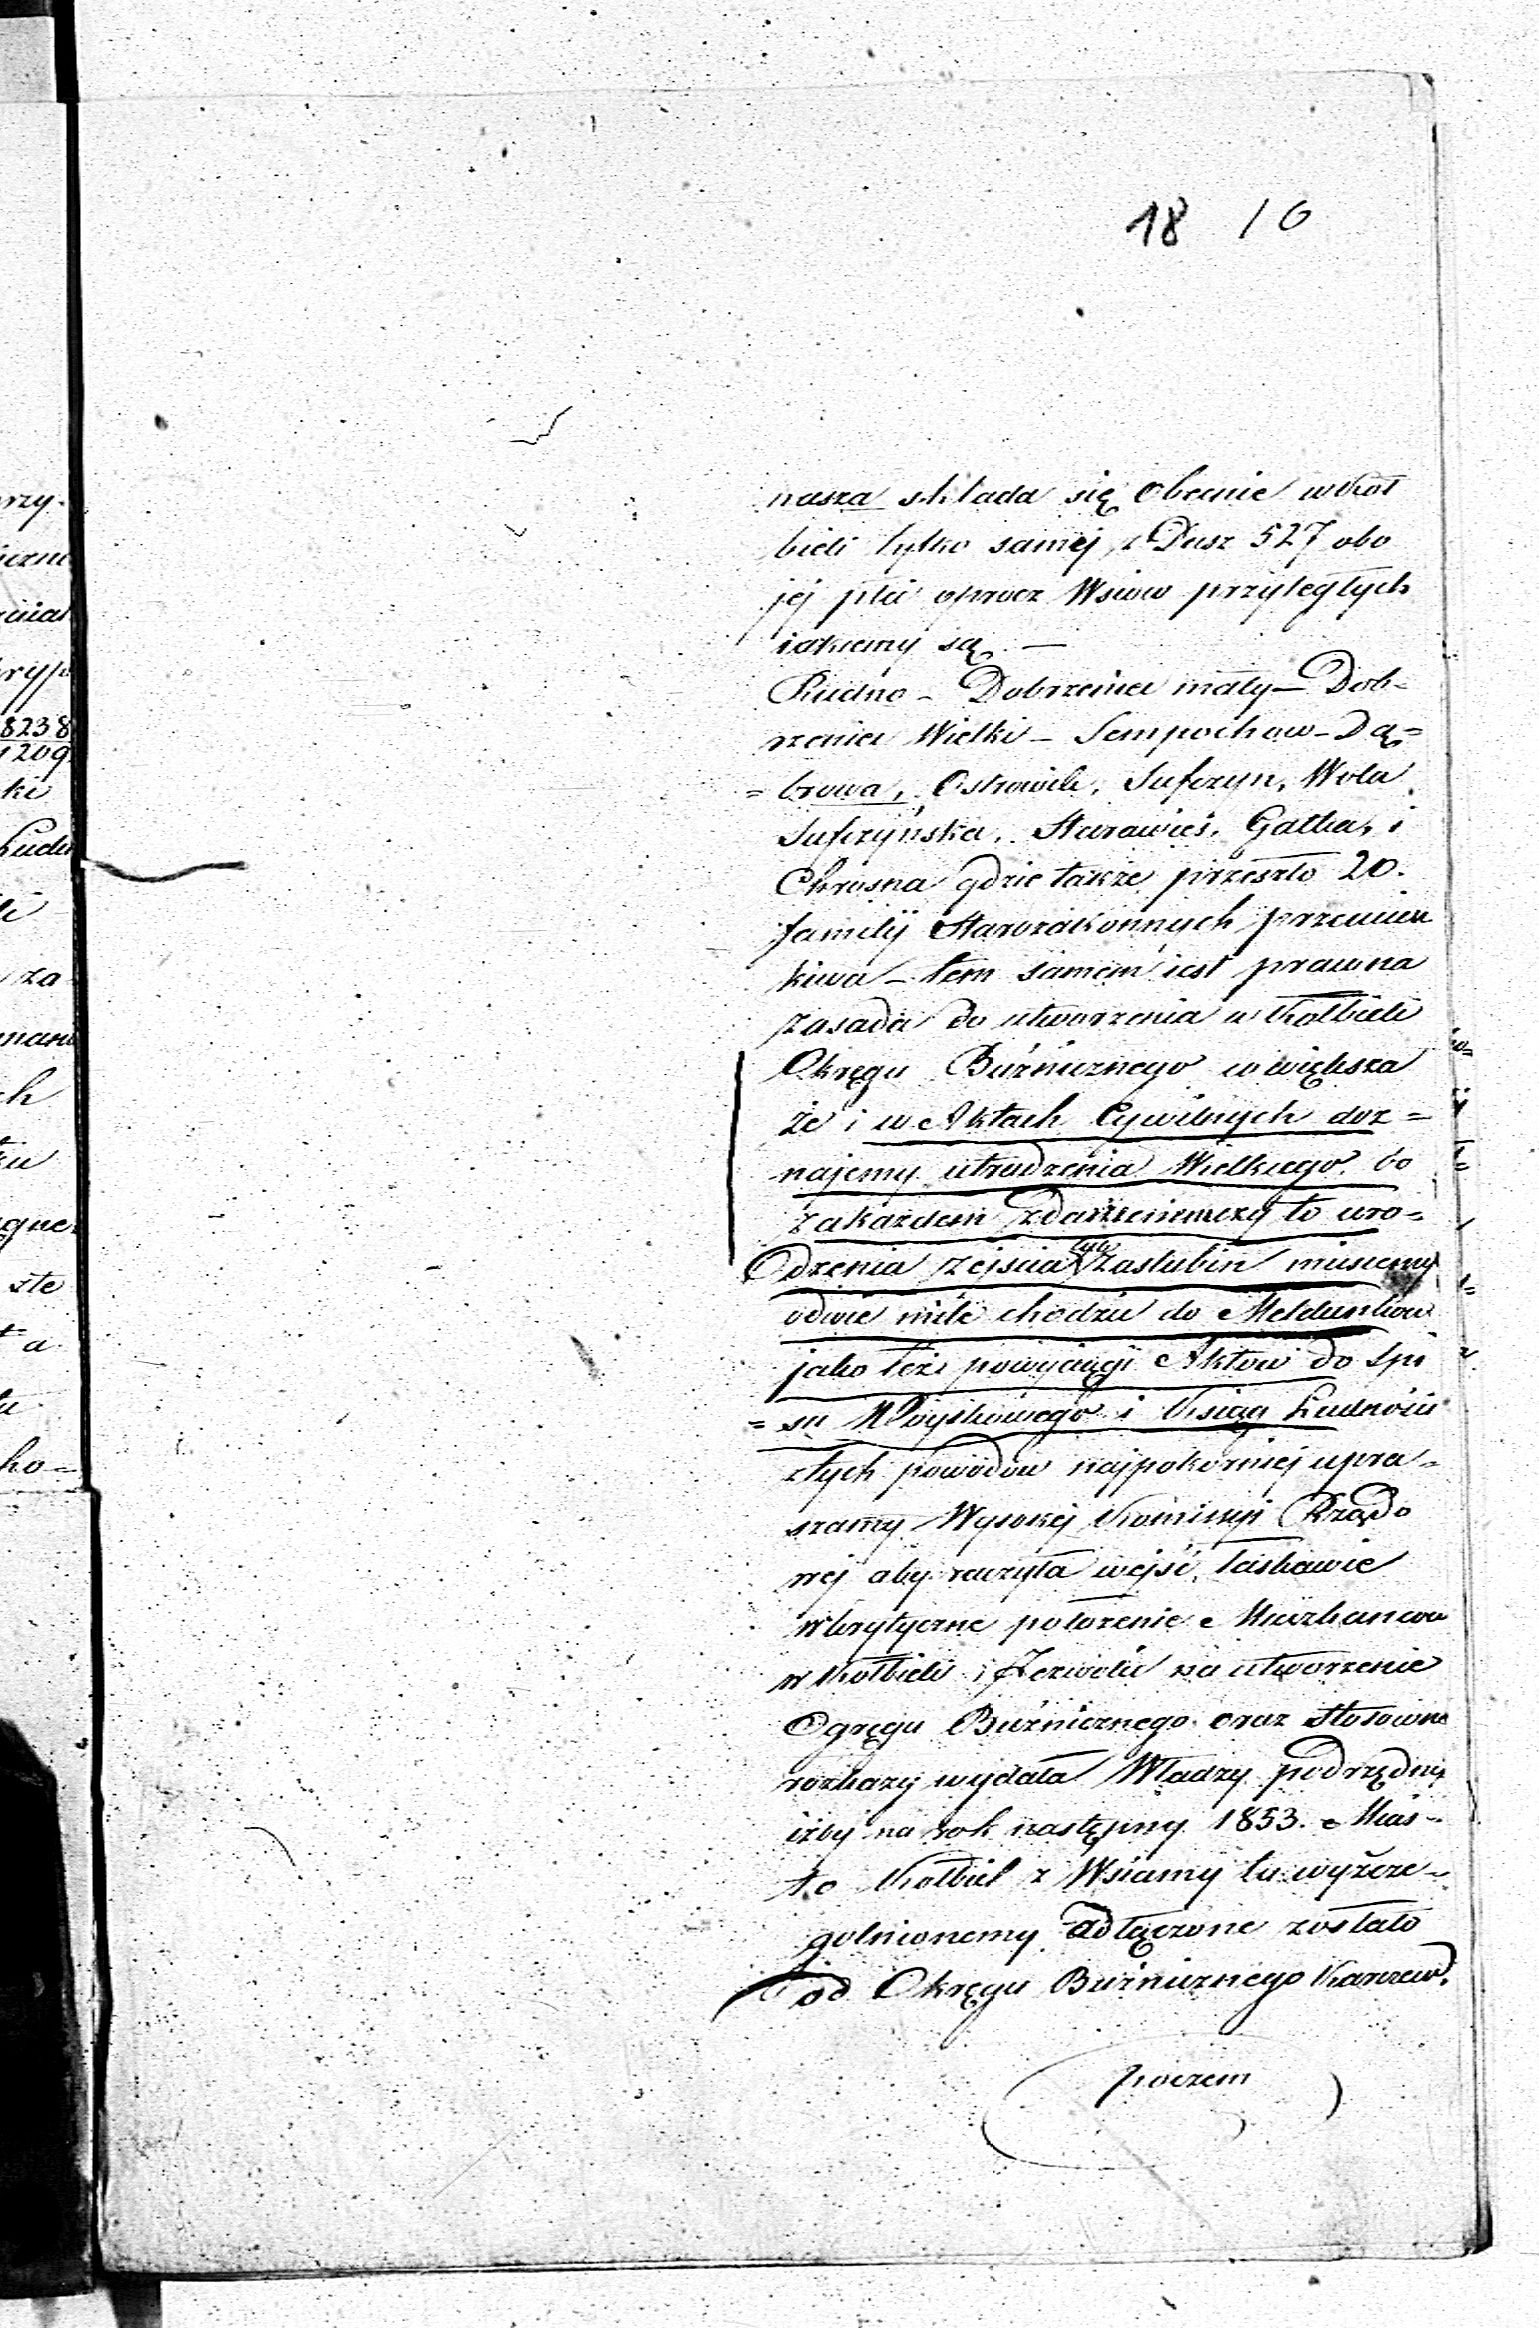 18 10
nasza składa się obecnie w Koł
bieli tylko samej z Dusz 527 obo
jej płci oprocz Wsiow przyległych
iakiemy są. —
Rudno - Dobrzeniec mały - Dob-
rzeniec Wielki - Sempochow - Dą=
=browa, Ostrowik, Sufczyn, Wola
Sufczyńska, Starawieś, Gatka, i
Chrosna gdzie także przeszło 20.
familij Starozakonnych przemiesz
kiwa - tem samem iest prawna
zasada do utworzenia w Kołbieli
Okręgu Bużnicznego w większa
że i w Aktach Cywilnych doz=
najemy utrudzenia Wielkiego bo
zakażdem zdarzeniem czy to uro=
dzenia zejścia tyh zaslubin musiemy
odwie mile chodzić do Meldunkow
jako też powyciągi Aktow do Spi
=su Woyskowego i Ksiąg Ludności
ztych powodow najpokorniej upra=
szamy Wysokej Kommissji Rządo
wej aby raczyła wejść łaskawie
w krytyczne położenie Mieszkancow
w Kołbieli i Zezwolić na utworzenie
Ogręgu Buźnicznego oraz Stosowne
rozkazy wydała Władzy podrzędnej
iżby na rok następny 1853. Mias-
to Kołbiel z Wsiamy tu wyszcze-
golnionemy adłączone zostało
od Okręgu Buźnicznego Karczew.
poczem
rzy.
8238
1209
ki
za
ch
zte
ta
ho=